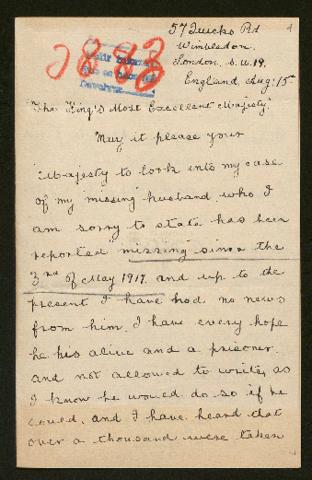 57 Quicks Rd
Wimbledon
London. S.W. 19.
England Aug: 15th
2883
"The King's Most Excellent Majesty."
"May it please your
"Majesty to look into my case
of my "missing" husband, who I
am sorry to state has been
reported "missing" since the
3rd of May 1917. and up to the
present I have had no news
from him. I have every hope
he his alive and a prisoner.
and not allowed to write, as
I know he would do so if he
could, and I have heard that
over a thousand were taken